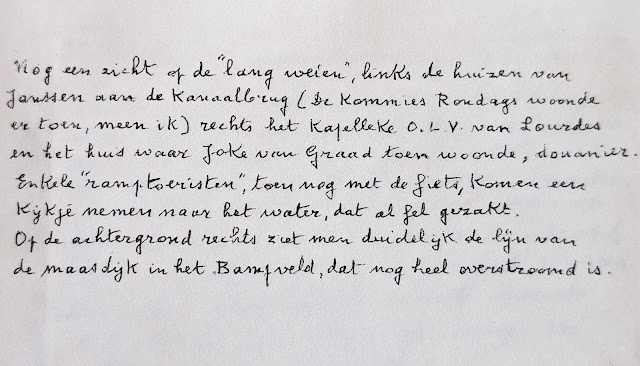 Nog een zicht op de "lang weien", links de huizen van
Janssen aan de Kanaalbrug (De Kommies Rondags woonde
er toen, meen ik) rechts het Kapelleke O.L.V. van Lourdes
en het huis waar Joke van Graad toen woonde, douanier.
Enkele "ramptoeristen", toen nog met de fiets, komen een
Kijkje nemen naar het water, dat al fel gezakt.
Op de achtergrond rechts ziet men duidelijk de lijn van
de maasdijk in het Bampveld, dat nog heel overstroomd is.